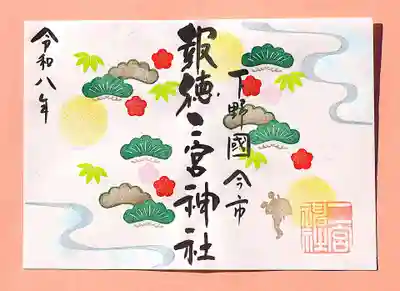 下野國今市
報徳二宮神社
令和八年
二宮